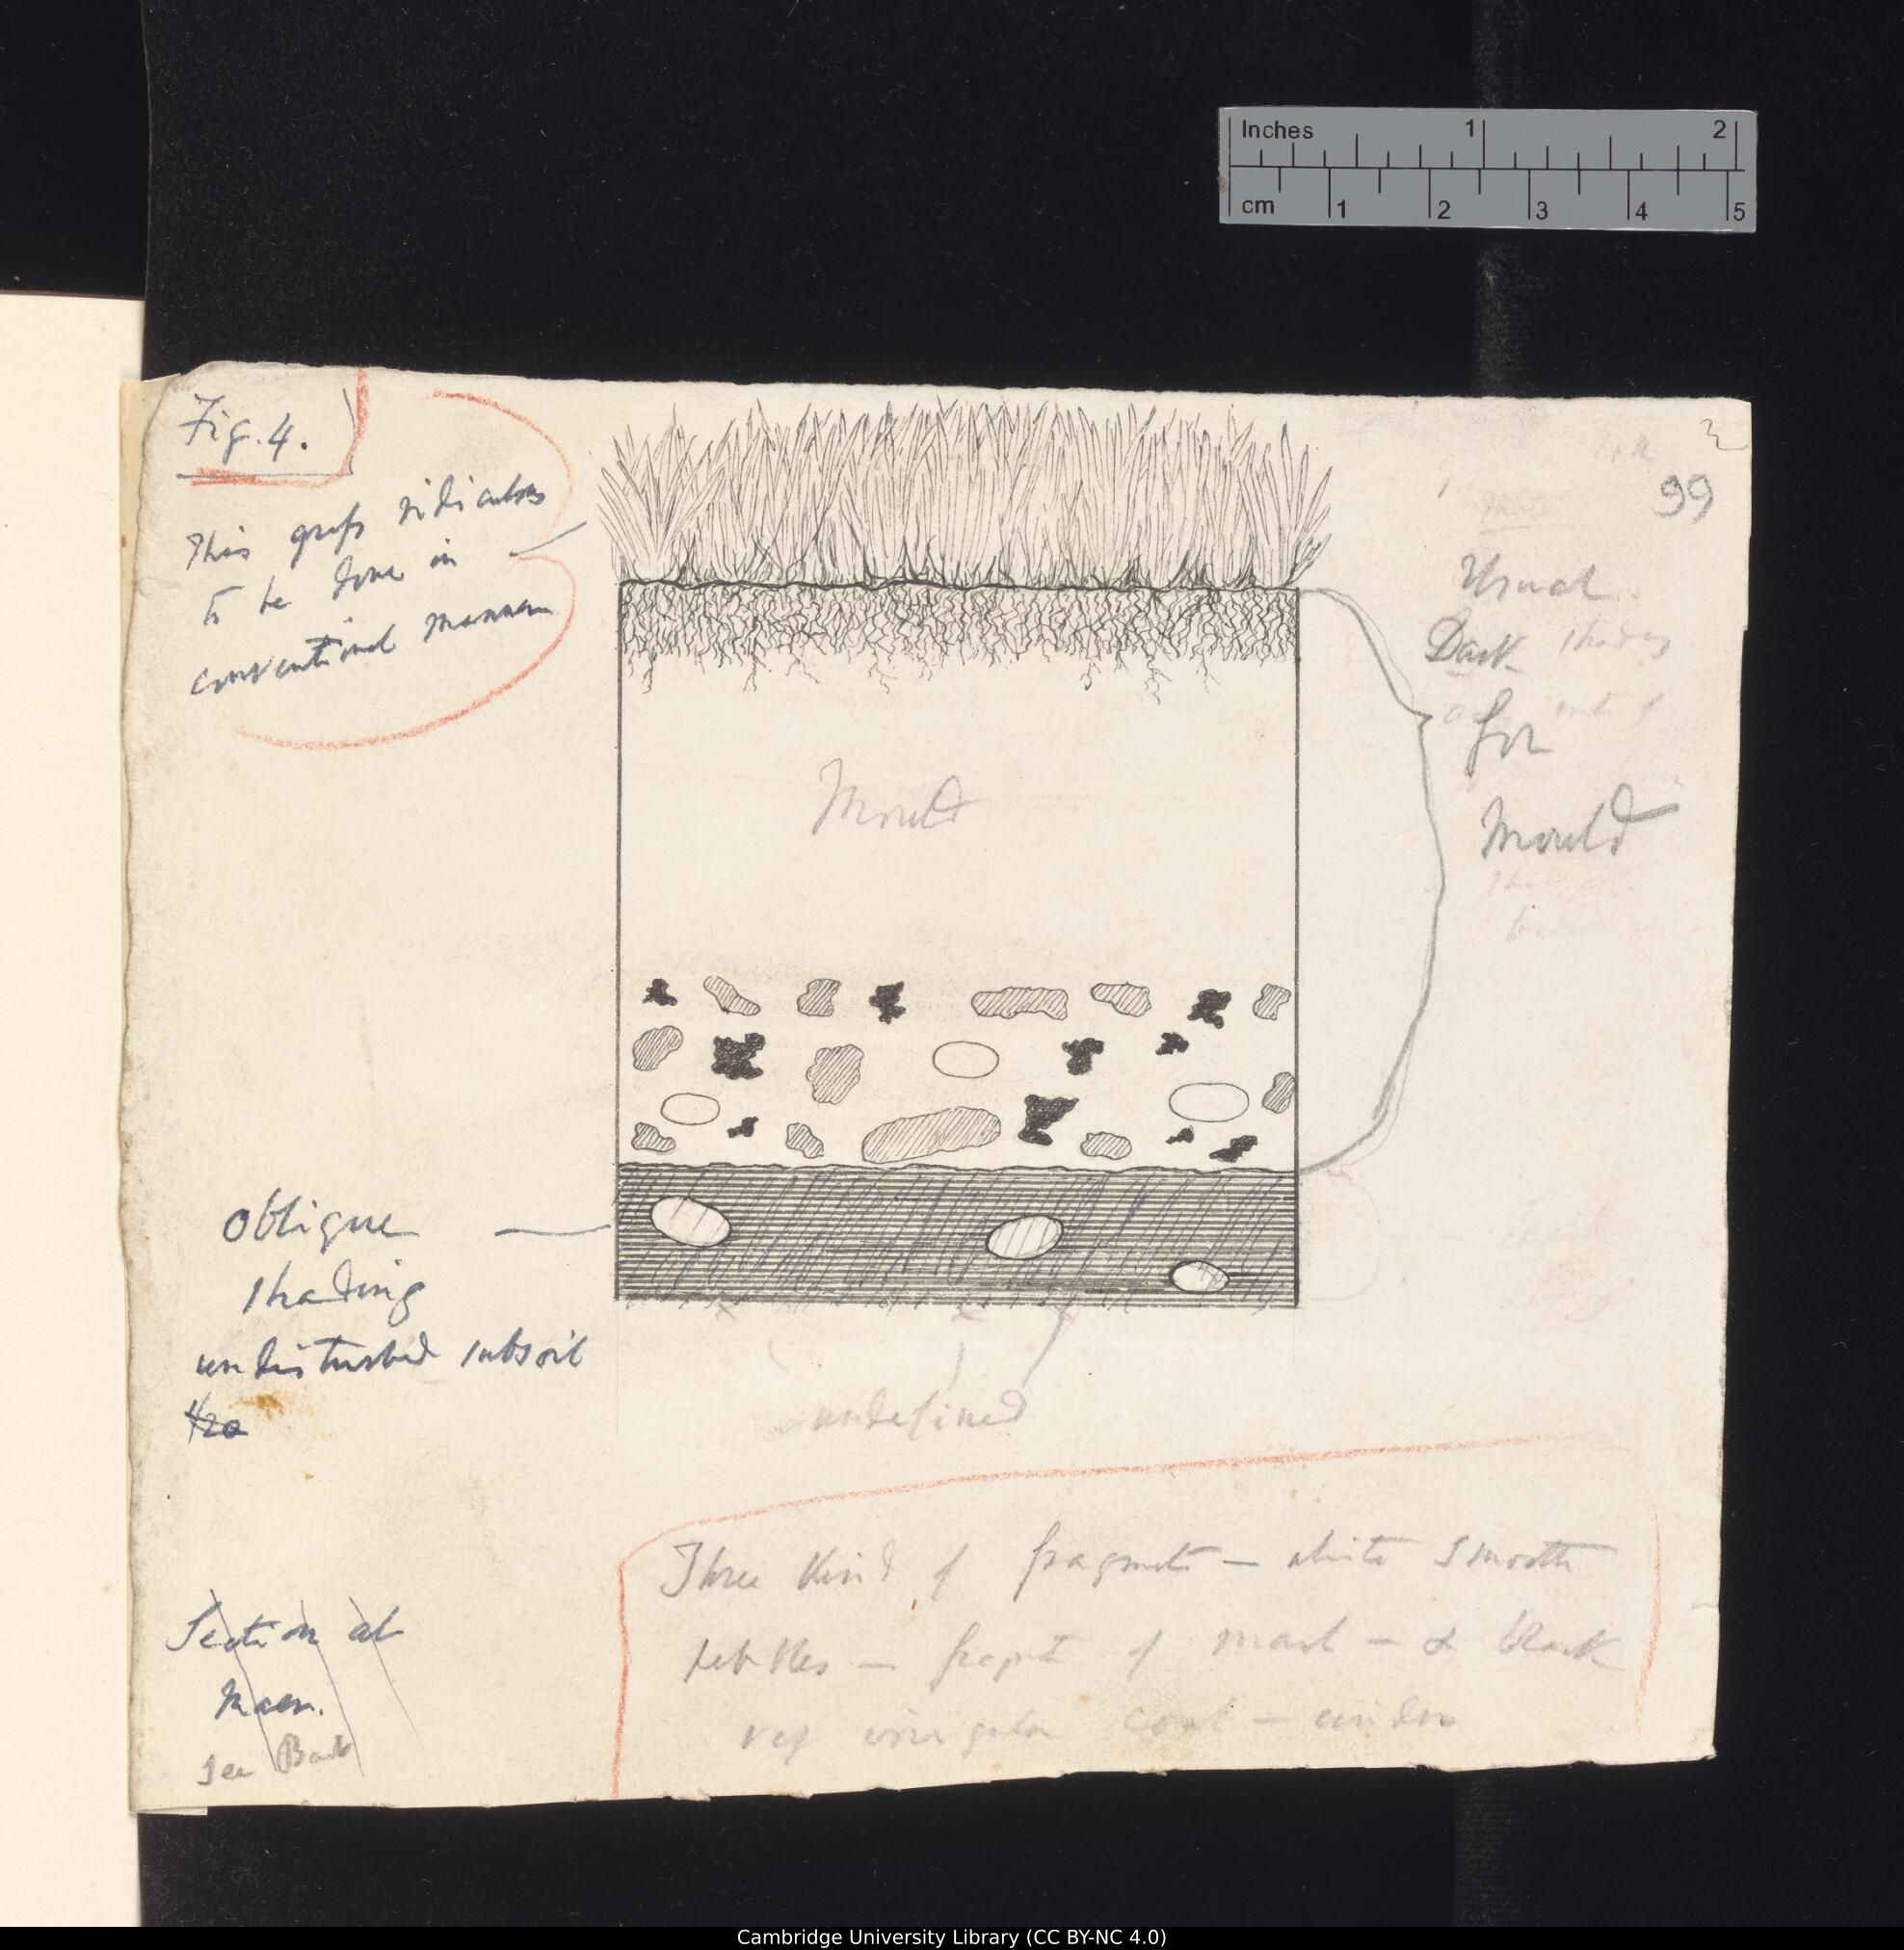 Inches 1 2
cm 1 2 3 4 5
Fig. 4.
This grass ridiculous
to be done in
conventional manner
99
Usual
Dark shading
for
Mould
Mould
Oblique
shading
undisturbed subsoil
undefined
Section at
Maer.
See Back
Three kind of fragmts — white smooth
pebbles — fragts of marl — & black
very irregular coal-cinders
Cambridge University Library (CC BY-NC 4.0)